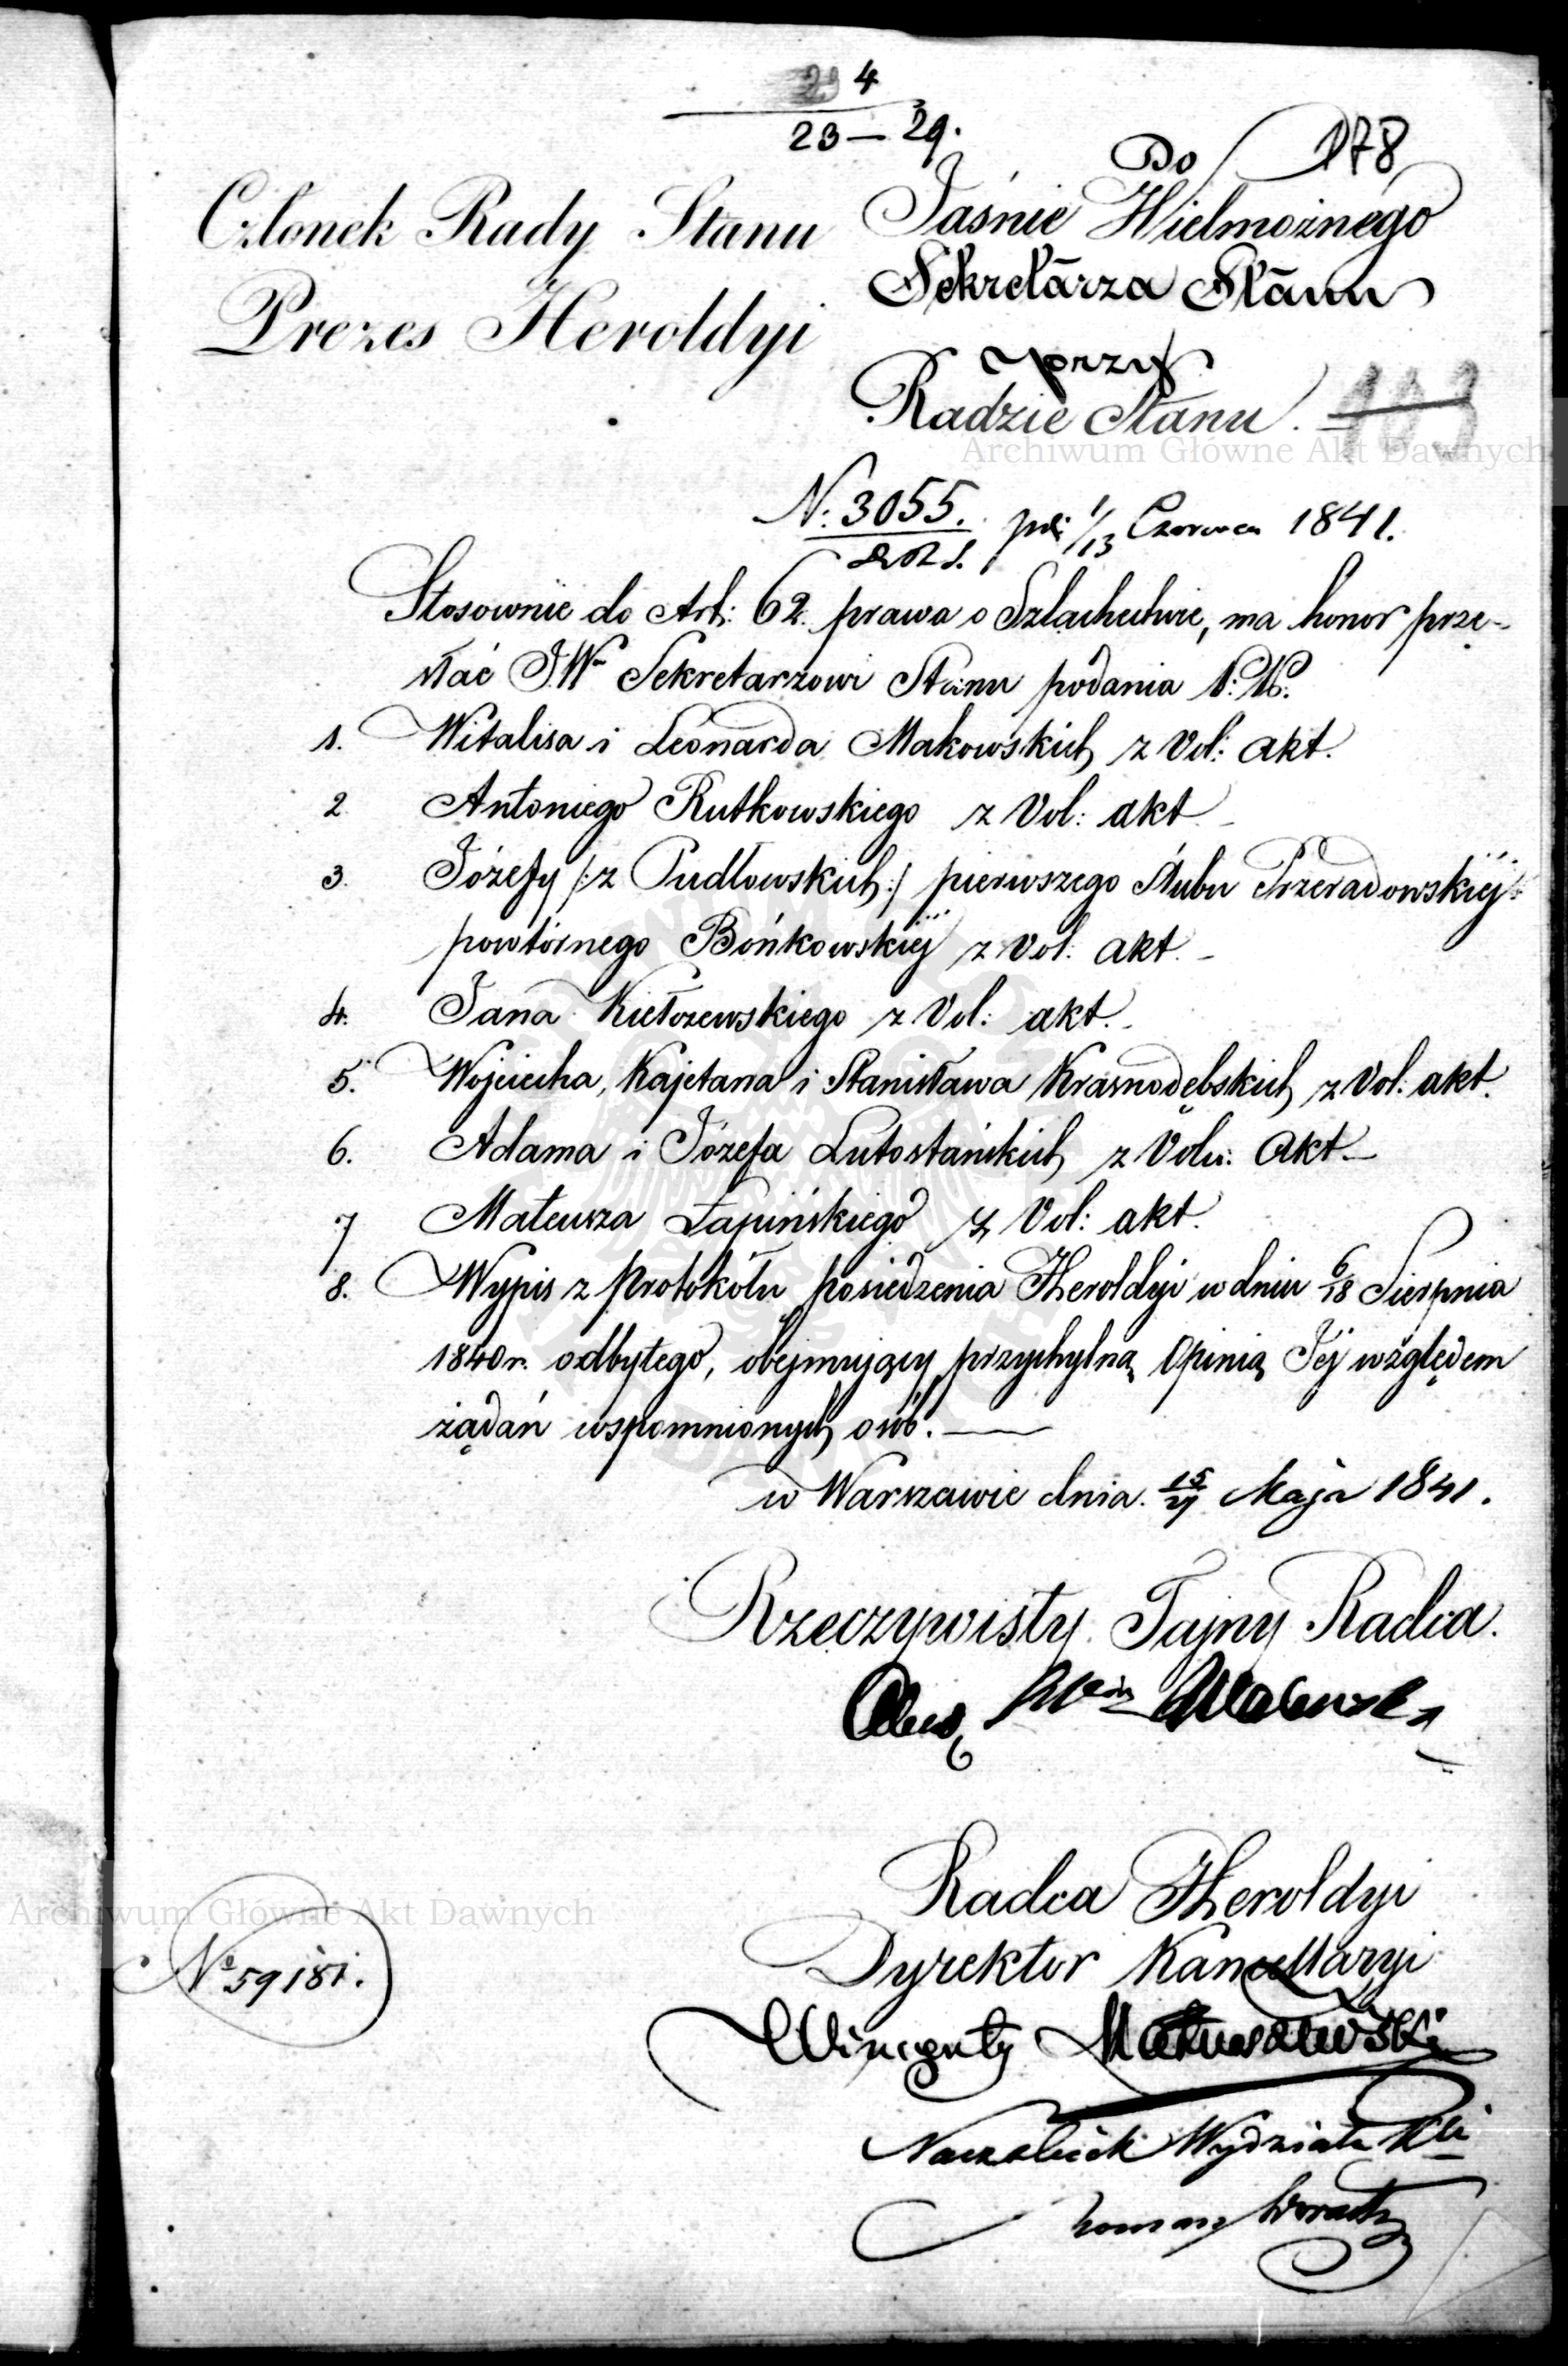 4
23 — 29.
178
Członek Rady Stanu
Prezes Heroldyi
Do
Jaśnie Wielmożnego
Sekretarza Stanu
przy
Radzie Stanu.
103
Archiwum Główne Akt Dawnych
N: 3055. 1/13 Czerwca 1841.
Stosownie do Art: 62. prawa o Szlachectwie, ma honor prze-
słać J.W. Sekretarzowi Stanu podania
1. Witalisa i Leonarda Makowskich z Vol: akt.
2. Antoniego Rutkowskiego z Vol: akt
3. Józefy /:z Pudłowskich:/ pierwszego ślubu Przeradowskiéj
powtórnego Bońkowskiéj z Vol. akt.
4. Jana Kiełczewskiego z Vol: akt.
5. Wojciecha, Kajetana i Stanisława Krasnodębskich z Vol: akt.
6. Adama i Józefa Lutostańskich z Volu: akt
7 Mateusza Łapińskiego z Vol: akt.
8. Wypis z Protokółu posiedzenia Heroldyi w dniu 6/18 Sierpnia
1840 r. odbytego, obejmujący przychylną Opinią Jéj względem
żądań wspomnionych osób.
w Warszawie dnia 15/27 Maja 1841.
Rzeczywisty Tajny Radca.
Radca Heroldyi
Dyrektor Kancellaryi
Wincenty Matuszewski
Naczelnik Wydziału
Archiwum Główne Akt Dawnych
No 59181.